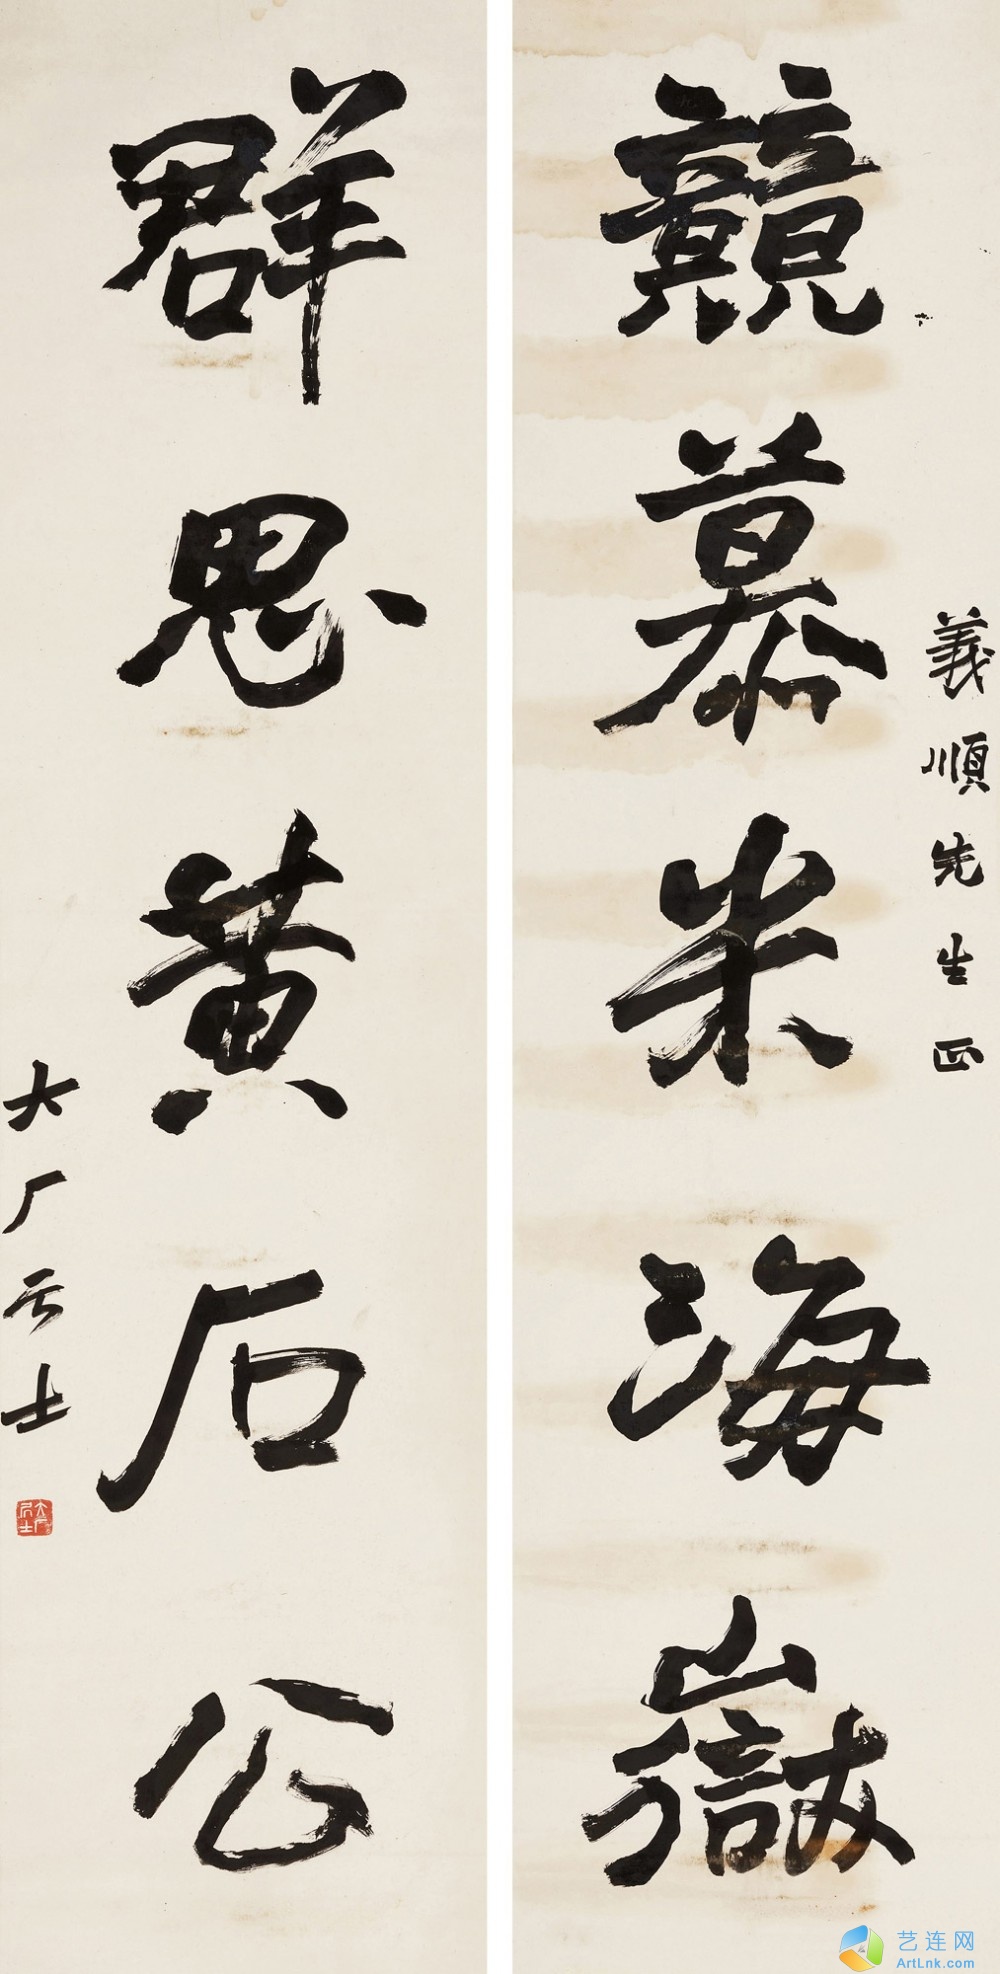 義順先生正
競慕米海嶽
群思黄石公
大厂居士
艺连网
ArtLnk.com